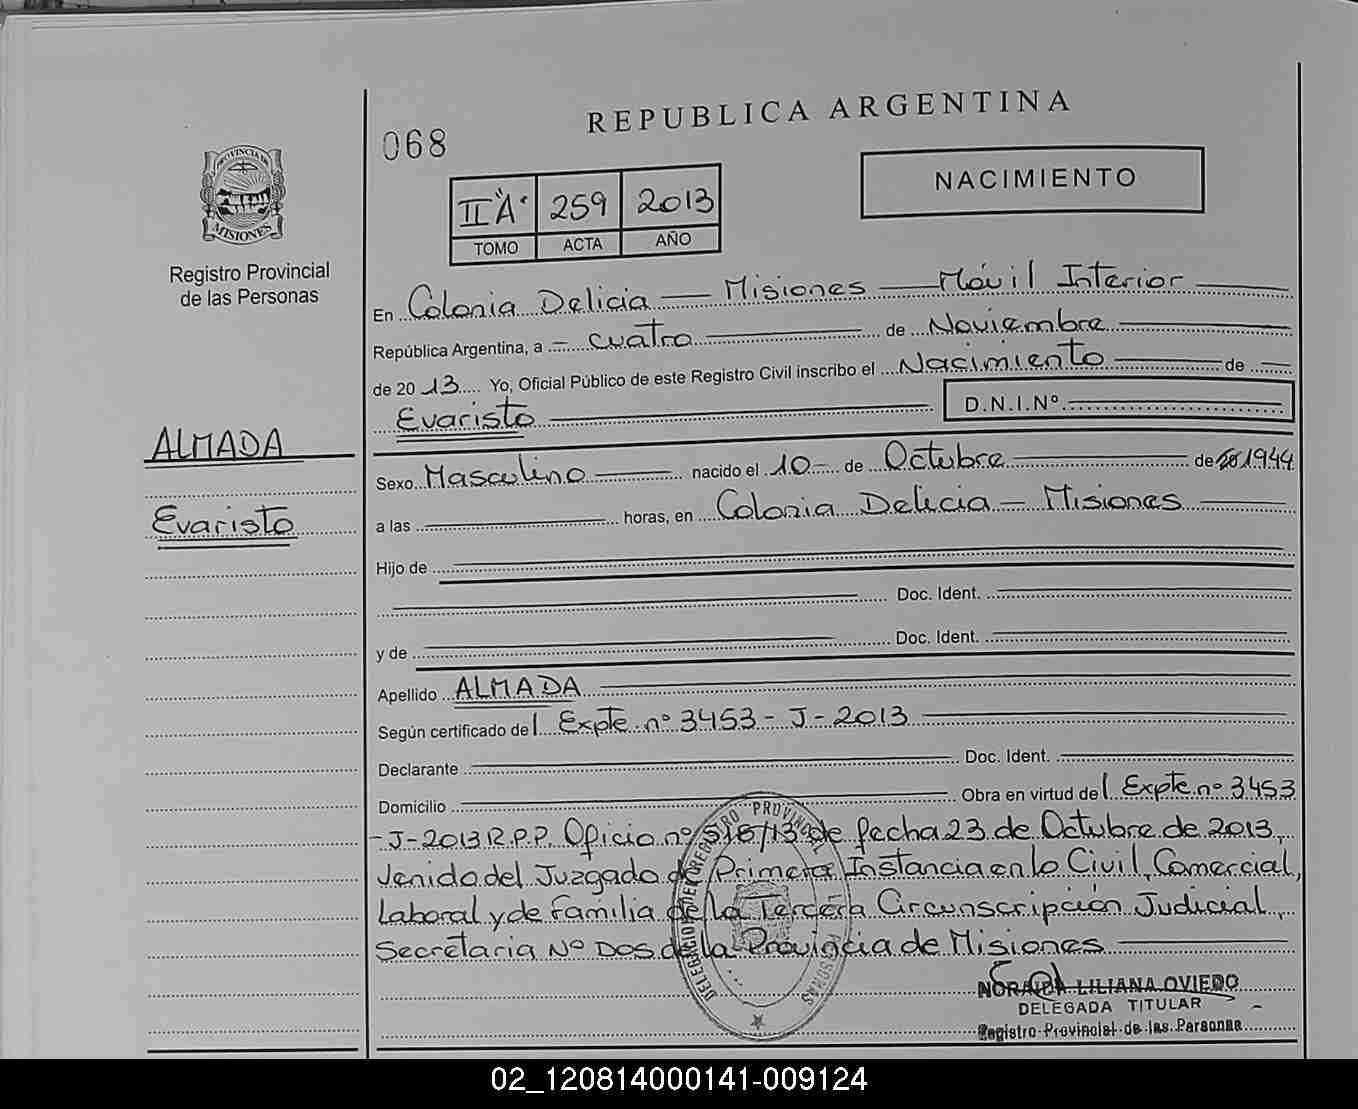 REPUBLICA ARGENTINA
068
NACIMIENTO
II "A" 259 2013
TOMO ACTA AÑO
PROVINCIA DE
MISIONES
Registro Provincial
de las Personas
En Colonia Delicia — Misiones — Móvil Interior
República Argentina, a - cuatro de Noviembre
de 2013 Yo, Oficial Público de este Registro Civil inscribo el Nacimiento de
Evaristo D.N.I.Nº
ALMADA
Evaristo
Sexo Masculino nacido el 10 - de Octubre de 1944
a las horas, en Colonia Delicia - Misiones
Hijo de
Doc. Ident.
y de Doc. Ident.
Apellido ALMADA
Según certificado del Expte. nº 3453 - J - 2013
Declarante Doc. Ident.
Domicilio Obra en virtud del Expte. nº 3453
- J - 2013 R.P.P. Oficio nº 518/13 de fecha 23 de Octubre de 2013,
venido del Juzgado de Primera Instancia en lo Civil, Comercial,
Laboral y de Familia de la Tercera Circunscripción Judicial,
Secretaria Nº Dos de la Provincia de Misiones
DELEGACION DEL REGISTRO PROVINCIAL DE LAS PERSONAS
NORAIDA LILIANA OVIEDO
DELEGADA TITULAR
Registro Provincial de las Personas
02_120814000141-009124